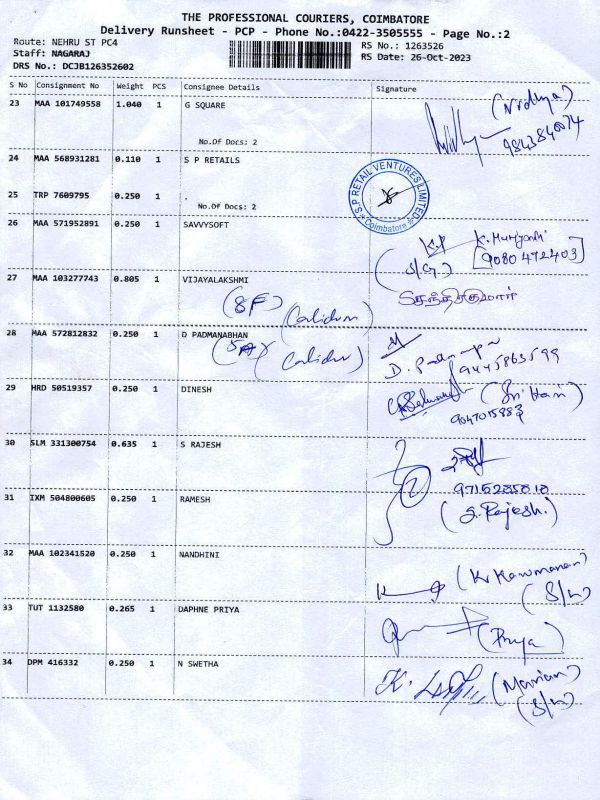 THE PROFESSIONAL COURIERS, COIMBATORE
Delivery Runsheet - PCP - Phone No.:0422-3505555 - Page No.:2
Route: NEHRU ST PC4 RS No.: 1263526
Staff: NAGARAJ RS Date: 26-Oct-2023
DRS No.: DCJB126352602
S No Consignment No Weight PCS Consignee Details Signature
23 MAA 101749558 1.040 1 G SQUARE
(Nidhya)
9843840074
No.Of Docs: 2
24 MAA 568931281 0.110 1 S P RETAILS
S.P RETAIL VENTURES LIMITED
Coimbatore
25 TRP 7609795 0.250 1 .
No.Of Docs: 2
26 MAA 571952891 0.250 1 SAVVYSOFT
K.P
(S/G)
[9080472403]
27 MAA 103277743 0.805 1 VIJAYALAKSHMI
(8F)
28 MAA 572812832 0.250 1 D PADMANABHAN
9445863599
29 HRD 50519357 0.250 1 DINESH
(Sri Hari)
30 SLM 331300754 0.635 1 S RAJESH
(S. Rajesh.)
31 IXM 504800605 0.250 1 RAMESH
32 MAA 102341520 0.250 1 NANDHINI
33 TUT 1132580 0.265 1 DAPHNE PRIYA
(Priya)
34 DPM 416332 0.250 1 N SWETHA